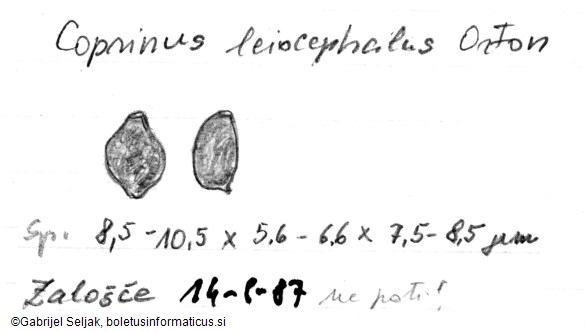 Coprinus leiocephalus Orton
Sp. 8,5 - 10,5 x 5,6 - 6,6 x 7,5 - 8,5 µm
Zalošče 14-6-87 ne poti!
©Gabrijel Seljak, boletusinformaticus.si